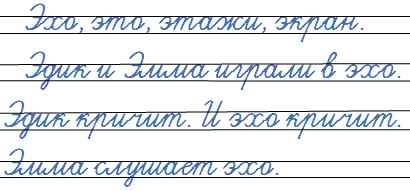 Эхо, это, этажи, экран.
Эдик и Эмма играли в эхо.
Эдик кричит. И эхо кричит.
Эмма слушает эхо.